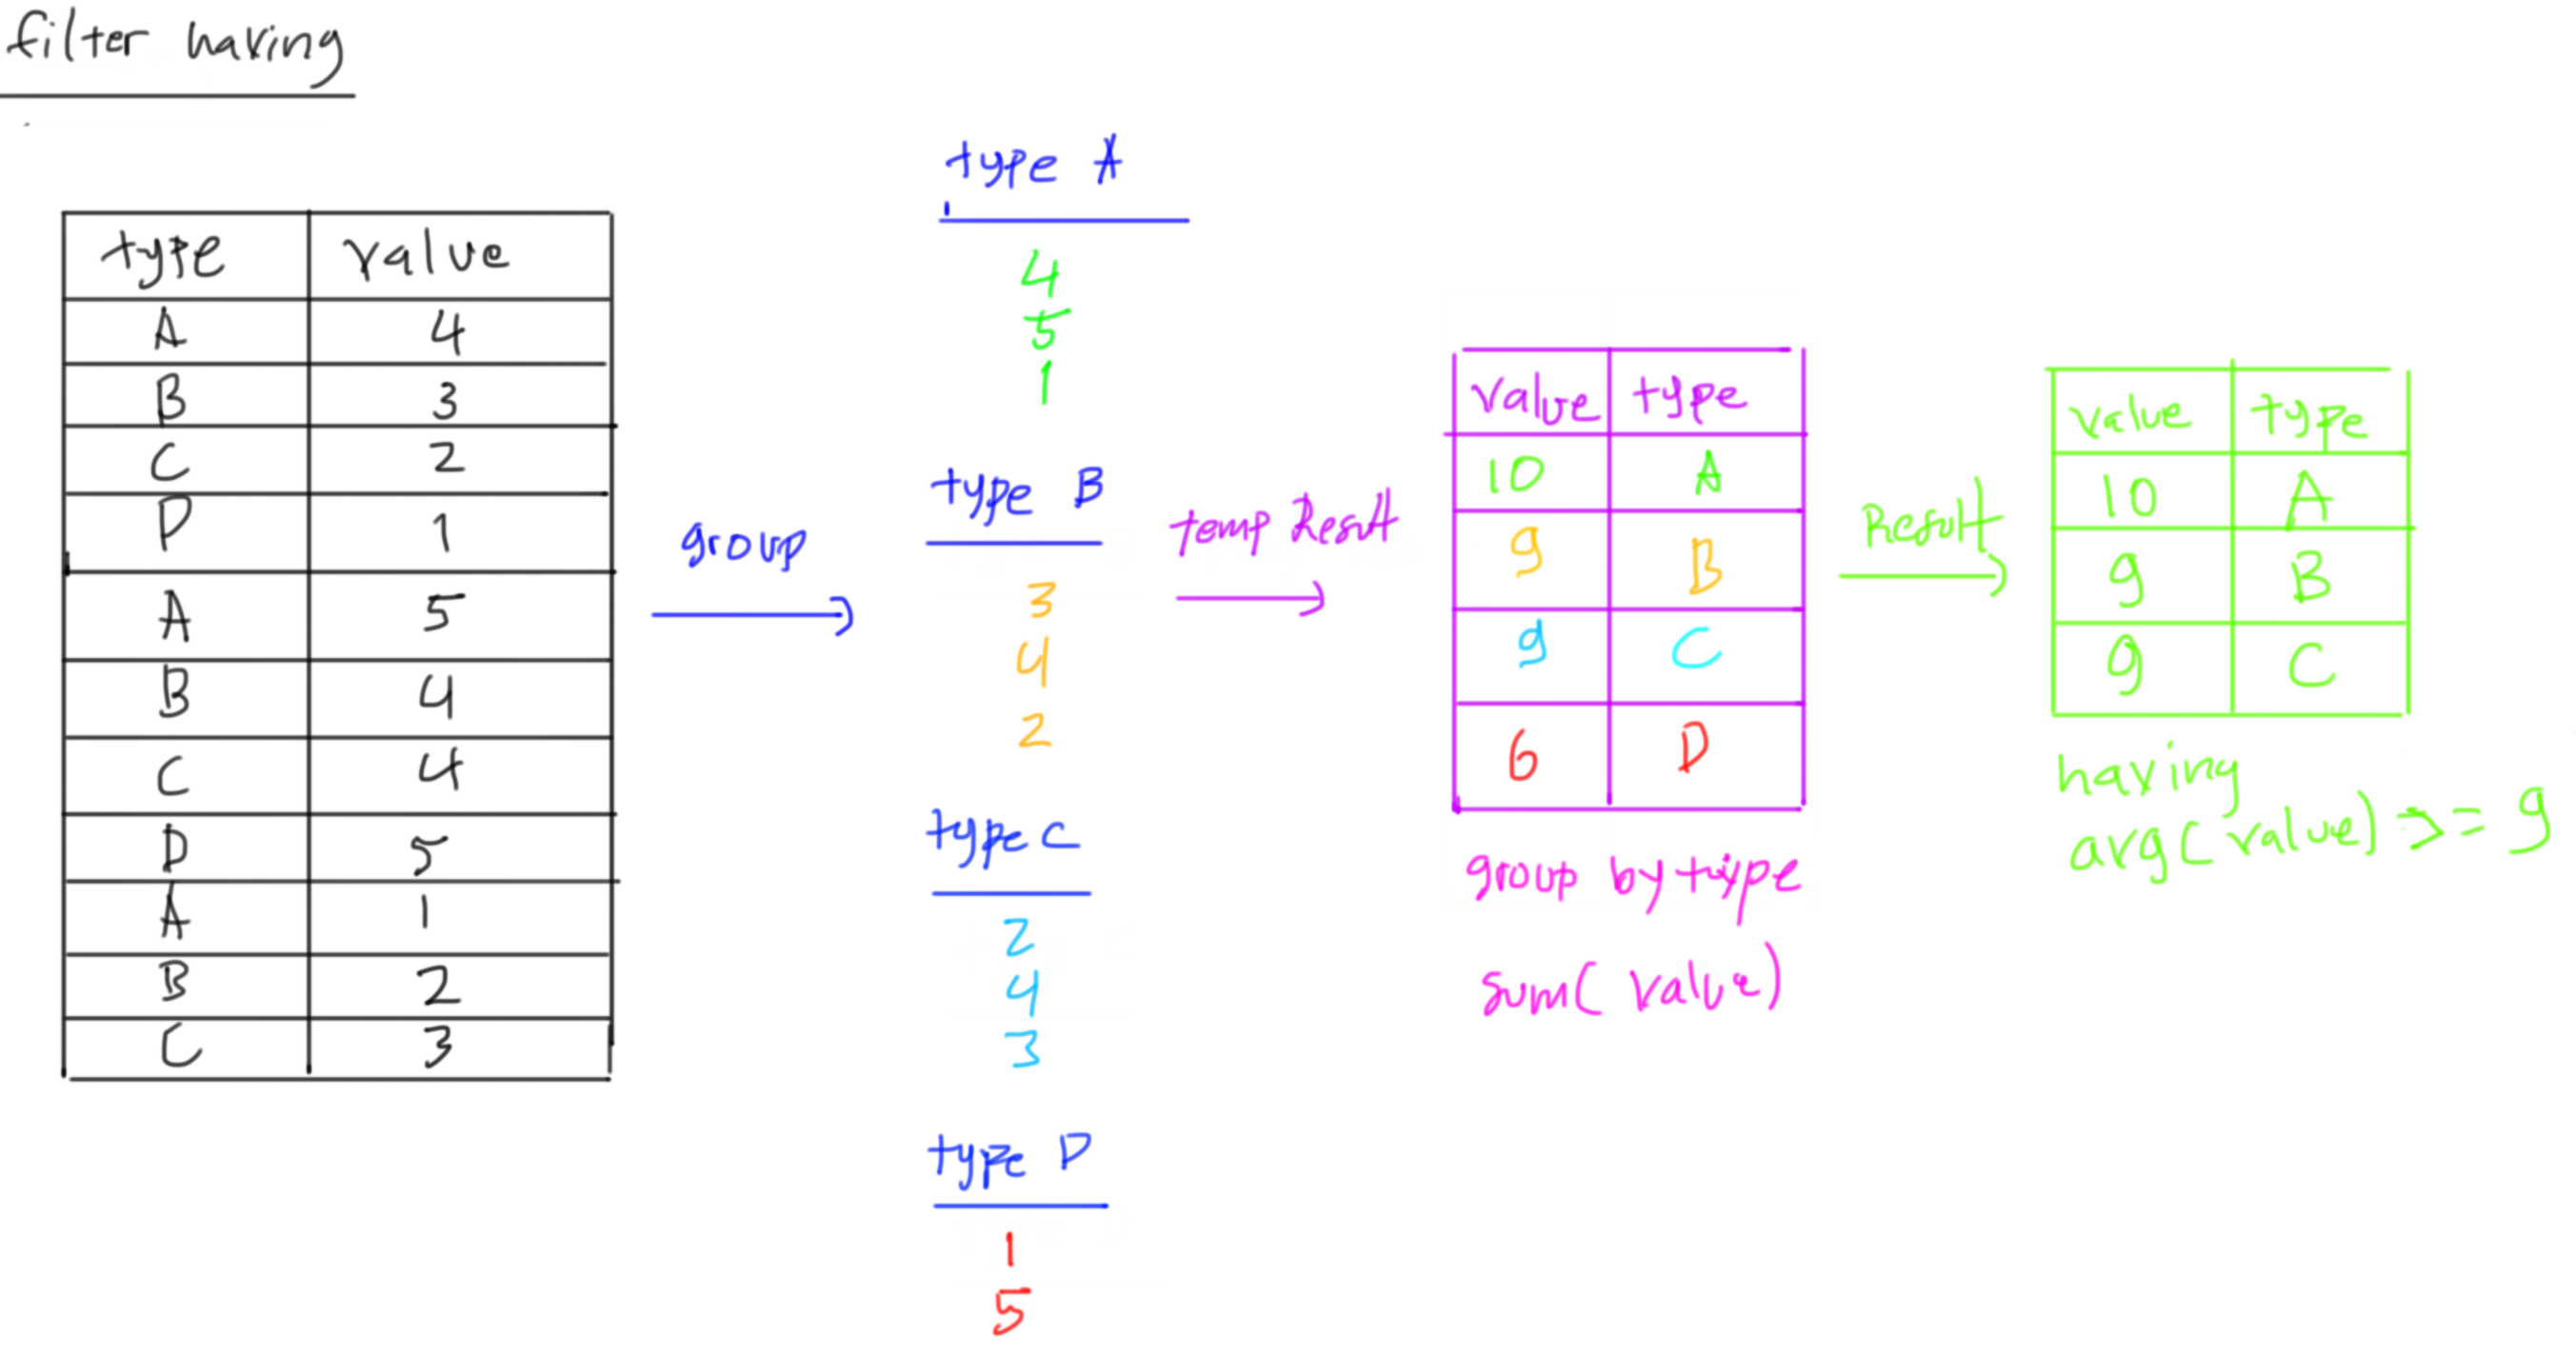 filter having
type value
A 4
B 3
C 2
D 1
A 5
B 4
C 4
D 5
A 1
B 2
C 3
group
type A
4
5
1
type B
3
4
2
type C
2
4
3
type D
1
5
temp Result
value type
10 A
9 B
9 C
6 D
group by type
sum( value)
Result
value type
10 A
9 B
9 C
having
avg( value) >= 9